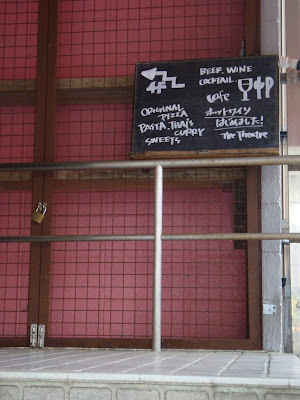 BEER. WINE
COCKTAIL
cafe
ORIGINAL
PIZZA
PASTA. THAI'S
CURRY
SWEETS
ホットワイン
はじめました!
The Theatre